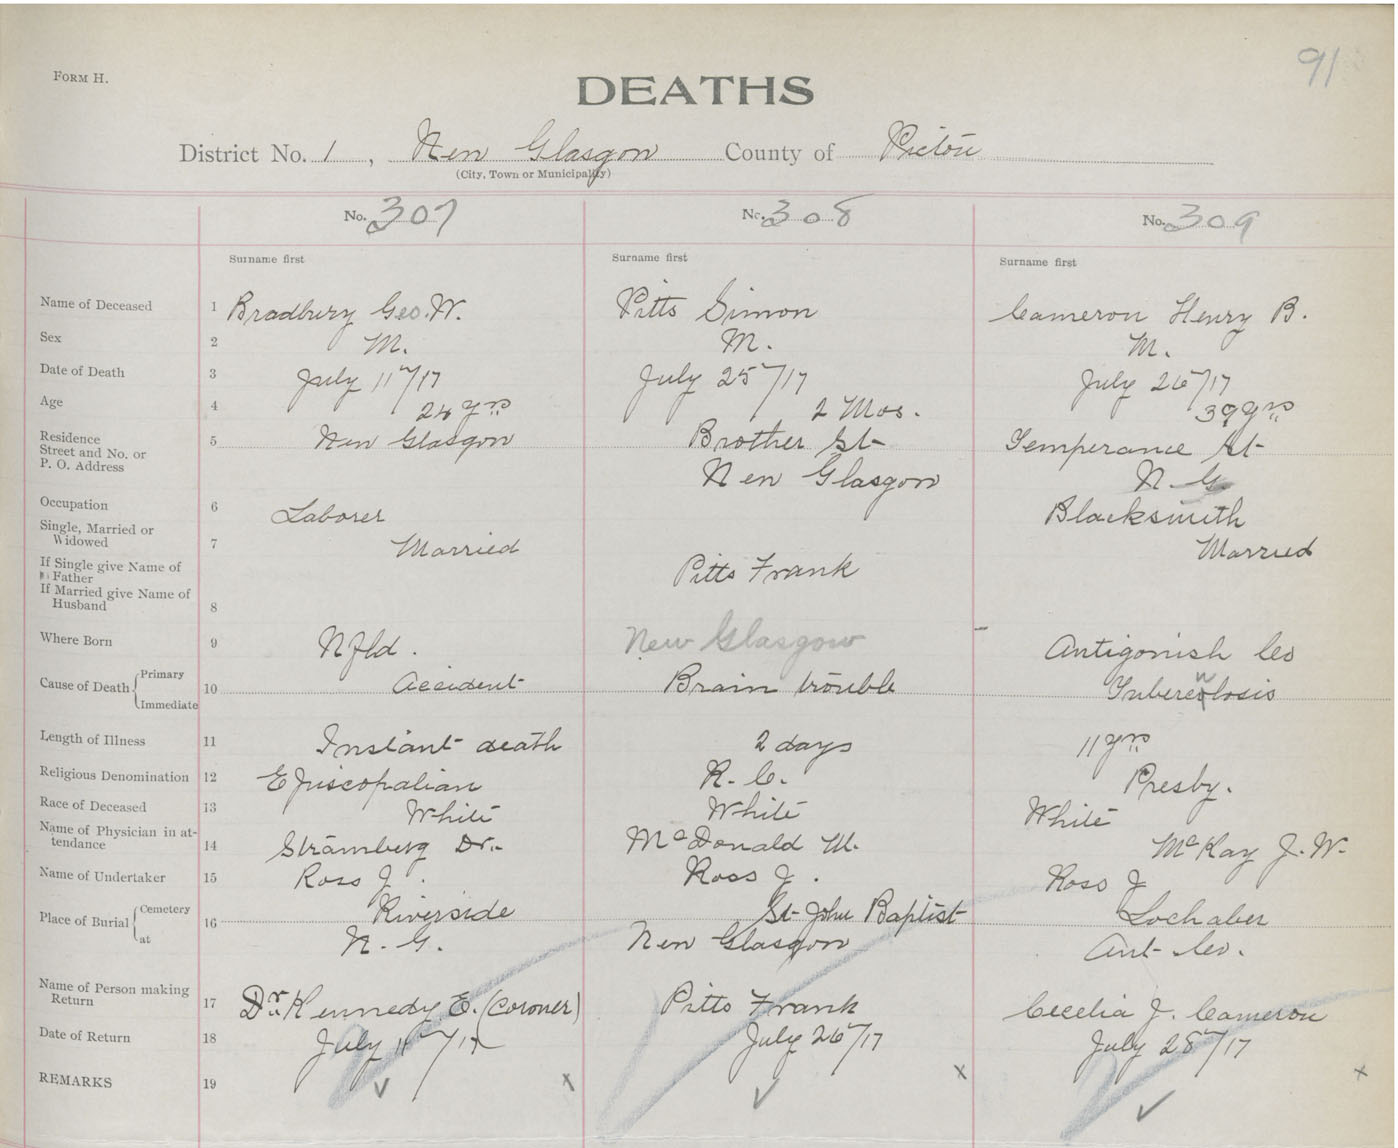 91
FORM H.
DEATHS
District No. 1, New Glasgow County of Pictou
(City, Town or Municipality)
No. 307 No. 308 No. 309
Surname first Surname first Surname first
Name of Deceased 1 Bradbury Geo. W. Pitts Simon Cameron Henry B.
Sex 2 M. M. M.
Date of Death 3 July 11"/17 July 25"/17 July 26/17
Age 4 24 yrs 2 Mos. 39 yrs
Residence 5 New Glasgow Brother St Temperance St
Street and No. or
P. O. Address New Glasgow N. G.
Occupation 6 Laborer Blacksmith
Single, Married or
Widowed 7 Married Married
If Single give Name of
Father Pitts Frank
If Married give Name of
Husband 8
Where Born 9 Nfld. New Glasgow Antigonish Co
Cause of Death { Primary
10 Accident Brain trouble Tuberculosis
Immediate
Length of Illness 11 Instant death 2 days 11 yrs
Religious Denomination 12 Episcopalian R. C. Presby.
Race of Deceased 13 White White White
Name of Physician in at-
tendance 14 Stramberg Dr. McDonald M. McKay J. W.
Name of Undertaker 15 Ross J. Ross J. Ross J
Place of Burial { Cemetery 16 Riverside St John Baptist Lochaber
at N. G. New Glasgow Ant Co.
Name of Person making
Return 17 Dr. Kennedy E. (Coroner) Pitts Frank Cecelia J. Cameron
Date of Return 18 July 11"/17 July 26/17 July 28"/17
REMARKS 19